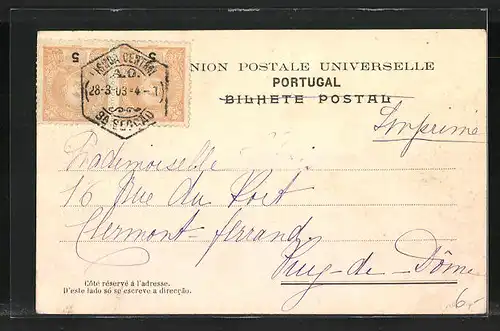 5 5
LISBOA CENTRAL
A.O.
28-3-03-4-
3A SECÇÃO
NION POSTALE UNIVERSELLE
PORTUGAL
BILHETE POSTAL
Imprimé
Mademoiselle
16 Rue du Port
Clermont-ferrand
Puy-de-Dôme
Côté réservé à l'adresse.
D'este lado só se escreve a direcção.
6.-